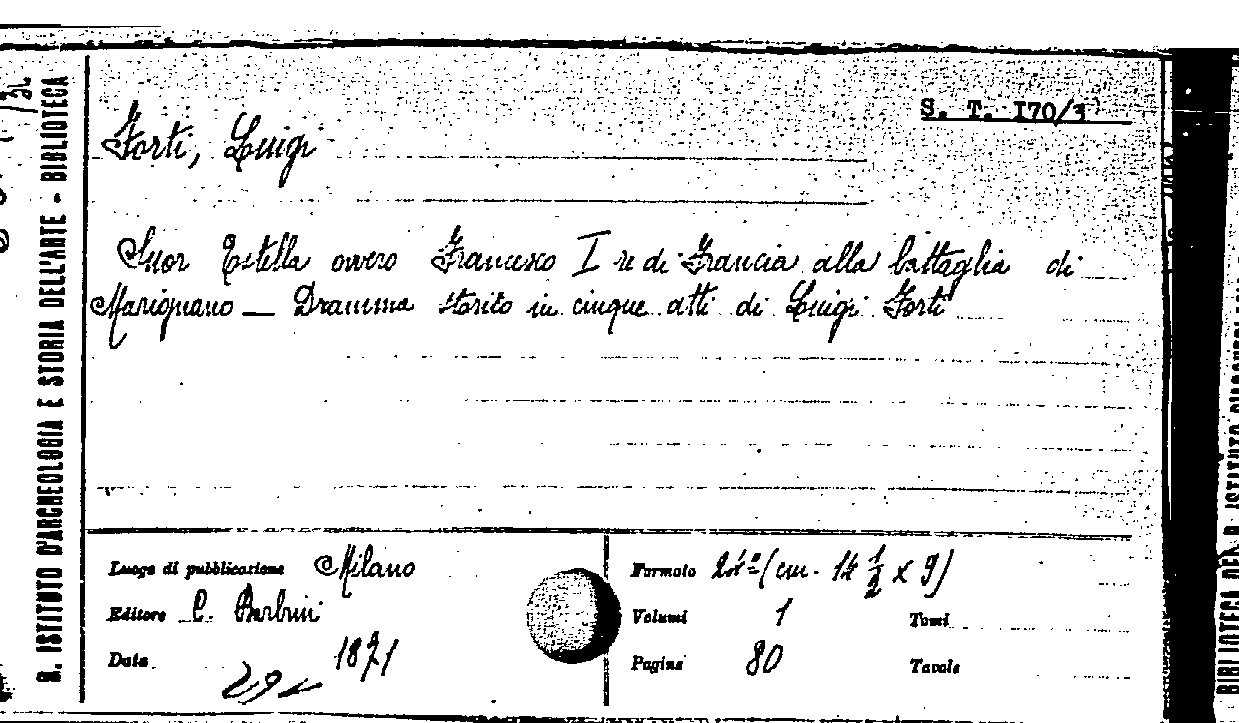 R. ISTITUTO D'ARCHEOLOGIA E STORIA DELL'ARTE - BIBLIOTECA
S. T. I70/3
Forti, Luigi
Suor Estella ovvero Francesco I re di Francia alla battaglia di
Marignano — Dramma storico in cinque atti di Luigi Forti
Luogo di pubblicazione Milano
Editore C. Barbini
Data 1871
Formato 24º (cm. 14 1/2 x 9)
Volumi 1 Tomi
Pagine 80 Tavole